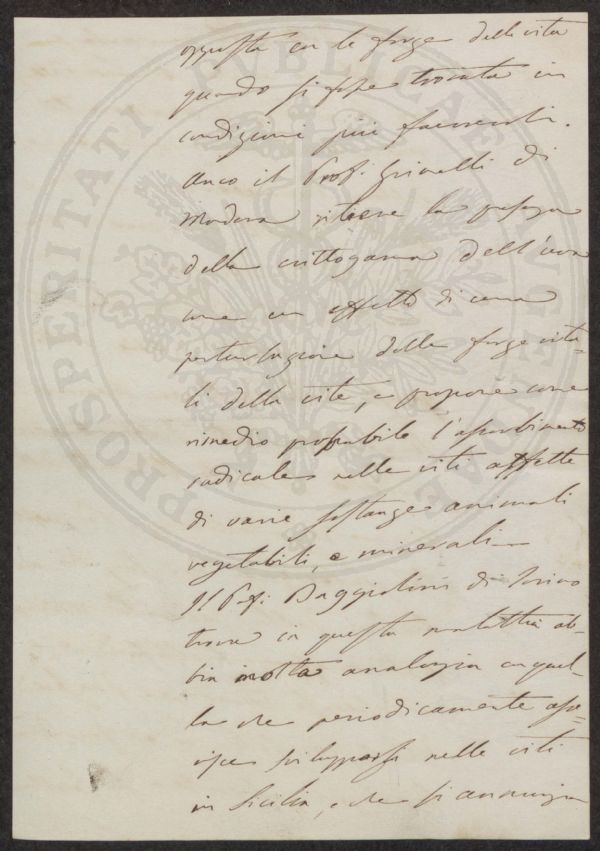 con le forze della vita
quando si fosse trovata in
condizioni più favorevoli.
anco il Prof. Grimelli di
Modena ritiene la
della crittogama dell'uva
come un effetto di una
perturbazione delle forze vita-
li della vite, e propone come
rimedio probabile l'assorbimento
radicale nelle viti affette
di varie sostanze animali
vegetabili, e minerali
Il Prof. Baggiolini di Torino
trova in questa malattia ab-
bia molta analogia a quel-
la che periodicamente
svilupparsi nelle viti
in Sicilia, e che si annunzia
PROSPERITATI PVBLICAE AVGENDAE